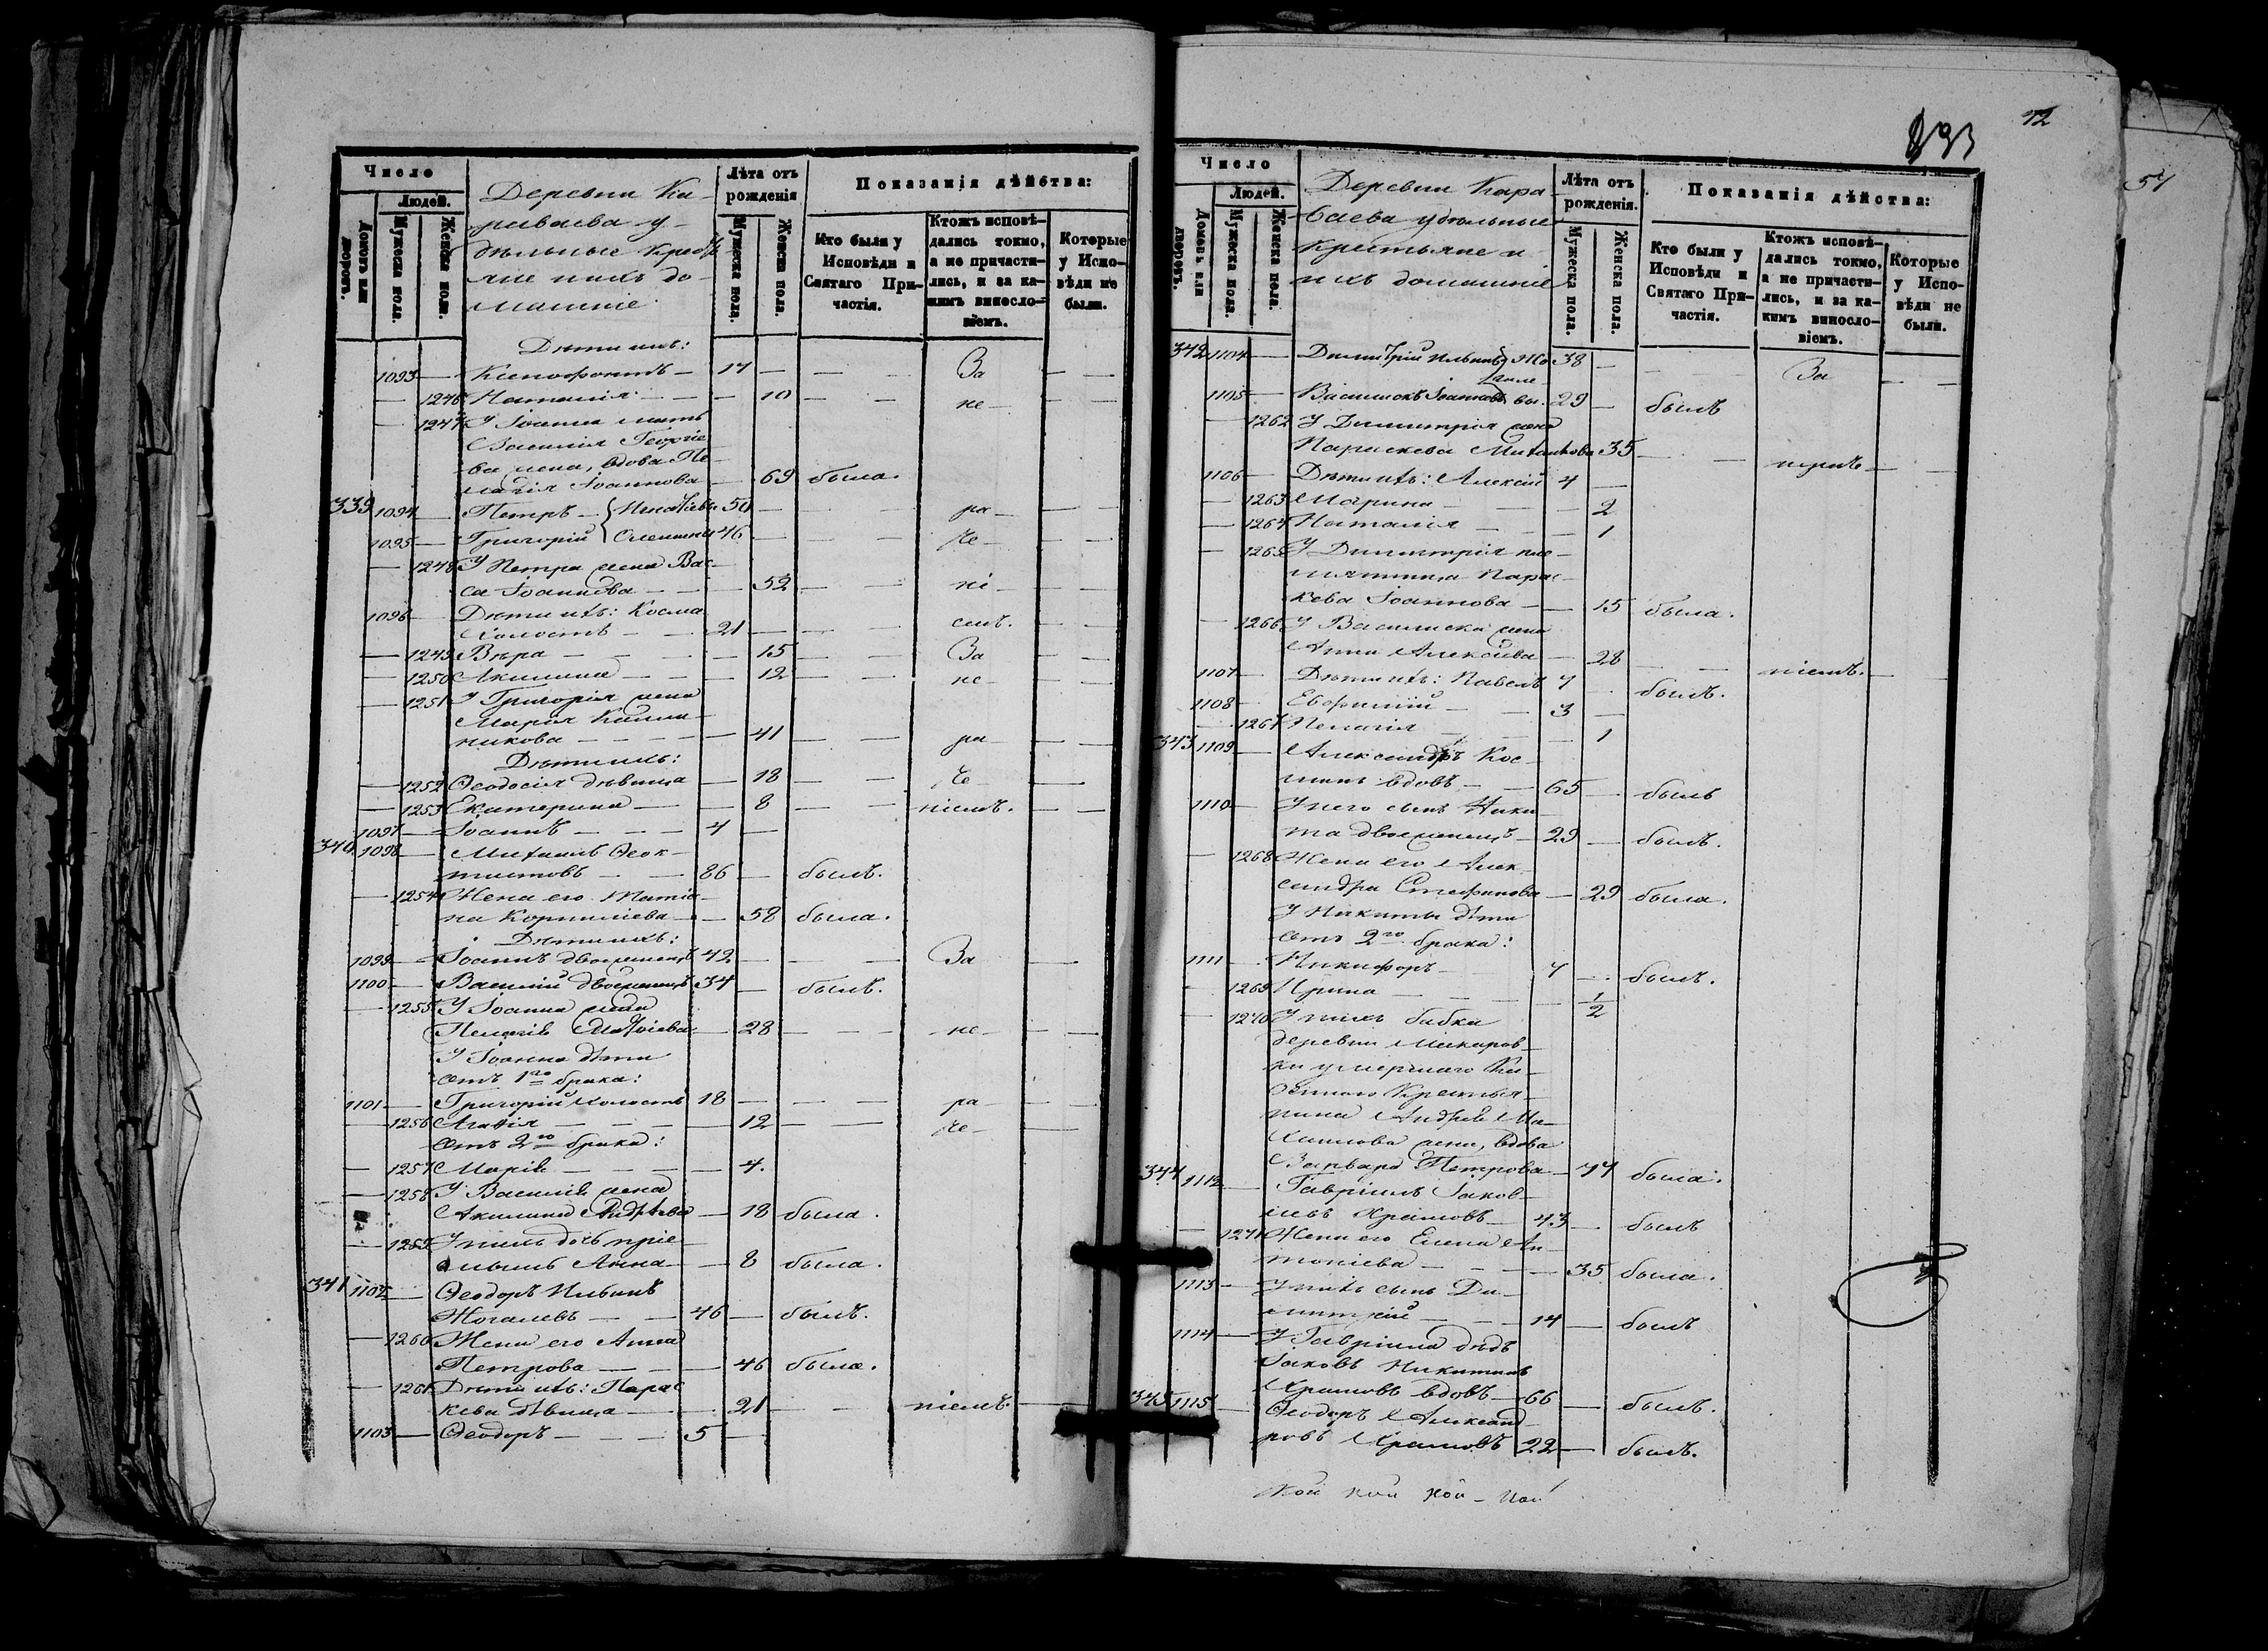 Число
Людей.
Домовъ или дворовъ.
Мужеска пола.
Женска пола.
Деревни Ка-
раваева у-
дѣльные крестья
не и ихъ до-
машніе
Лѣта отъ рожденія
Мужеска пола.
Женска пола.
Показанія дѣйства:
Кто были у Исповѣди и Святаго При-частія.
Ктожъ исповѣ-дались токмо, а не причасти-лись, и за ка-кимъ виносло-віемъ.
Которые у Испо-вѣди не были.
Дѣти ихъ:
1093 — Ксенофонтъ — 17 — — — За — —
— 1246 Наталія — — 10 — — не — —
— 1247 У Іоанна мать
Василія Георгіе-
ва жена, вдова Пе-
лагія Іоаннова — 69 была.
339 1094 — Петръ — 50 — — — ра — —
1095 — Григорій 46 — — — че — —
— 1248 У Петра жена Вас-
са Іоаннова — — 52 — — ні — —
1096 — Дѣти ихъ: Косма
холостъ — — 21 — — — емъ. — —
— 1249 Вѣра — — — 15 — — За — —
— 1250 Акилина — — — 12 — — не — —
— 1251 У Григорія жена
Марія Калли-
никова — — — 41 — — ра — —
Дѣти ихъ:
— 1252 Ѳеодосія дѣвица — 18 — — че — —
— 1253 Екатерина — — 8 — — ніемъ. — —
1097 — Іоаннъ — — — 4 —
340 1098 — Михаилъ Ѳеок-
тистовъ — — 86 — былъ.
— 1254 Жена его Татіа-
на Корниліева — — 58 была.
Дѣти ихъ:
1099 — Іоаннъ двоеженецъ 42 — — — За — —
1100 — Василій двоеженецъ 34 — былъ.
— 1255 У Іоанна жена
Пелагія — 28 — — не — —
У Іоанна дѣти
отъ 1го брака:
1101 — Григорій холостъ 18 — — — ра — —
— 1256 Агаѳія — — — 12 — — че — —
отъ 2го брака:
— 1257 Марія — — — 4.
— 1258 У Василія жена
Акилина Андреева — 18 была.
— 1259 У нихъ дочь пріе-
мышъ Анна — — 8 была.
341 1102 — Ѳеодоръ Ильинъ
Жогалевъ — — 46 — былъ.
— 1260 Жена его Анна
Петрова — — — 46 была.
— 1261 Дѣти ихъ: Парас-
кева дѣвица — — 21 — — ніемъ — —
1103 — Ѳеодоръ — — — 5 —
12
57
Число
Людей.
Домовъ или дворовъ.
Мужеска пола.
Женска пола.
Деревни Кара-
баева удѣльные
крестьяне и
ихъ домашніе
Лѣта отъ рожденія.
Мужеска пола.
Женска пола.
Показанія дѣйства:
Кто были у Исповѣди и Святаго При-частія.
Ктожъ исповѣ-дались токмо, а не причасти-лись, и за ка-кимъ винословіемъ.
Которые у Испо-вѣди не были.
342 1104 — Димитрій Ильинъ Жо 38 — — — За — —
гале-
1105 — Василискъ Іоанновъ вы. 29 — былъ
— 1262 У Димитрія жена
Параскева Михайлова 35 — — — —
1106 — Дѣти ихъ: Алексій 4 —
— 1263 Марина — — — 2
— 1264 Наталія — — 1
— 1265 У Димитрія пле-
мянница Парас-
кева Іоаннова — — 15 была.
— 1266 У Василиска жена
Анна Алексіева — 28 — — ніемъ. —
1107 — Дѣти ихъ: Павелъ 7 — былъ.
1108 — Евфимій — — 3 —
— 1267 Пелагія — — — 1
343 1109 — Александръ Кос-
минъ вдовъ — — 65 — былъ
1110 — У него сынъ Ники-
та двоеженецъ — 29 — былъ.
— 1268 Жена его Алек-
сандра Стефанова — 29 была.
У Никиты дѣти
отъ 2го брака:
1111 — Никифоръ — 7 — былъ.
— 1269 Ирина — — — 1/2
— 1270 У нихъ бабка
деревни Макаров-
ки умершаго Ка-
зеннаго Крестья-
нина Андрея Ма-
жена, вдова
Варвара Петрова — 77 была.
344 1112 — Гавріилъ Іаков-
левъ Храмовъ — 43 — былъ
— 1271 Жена его Елена Ан-
тоніева — — — 35 была.
1113 — У нихъ сынъ Ди-
митрій — — — 14 — былъ
1114 — У Гавріила дядь
Іаковъ Никитинъ
Храмовъ вдовъ — 66 — былъ.
345 1115 — Ѳеодоръ Александ-
ровъ Храмовъ 22 — былъ.